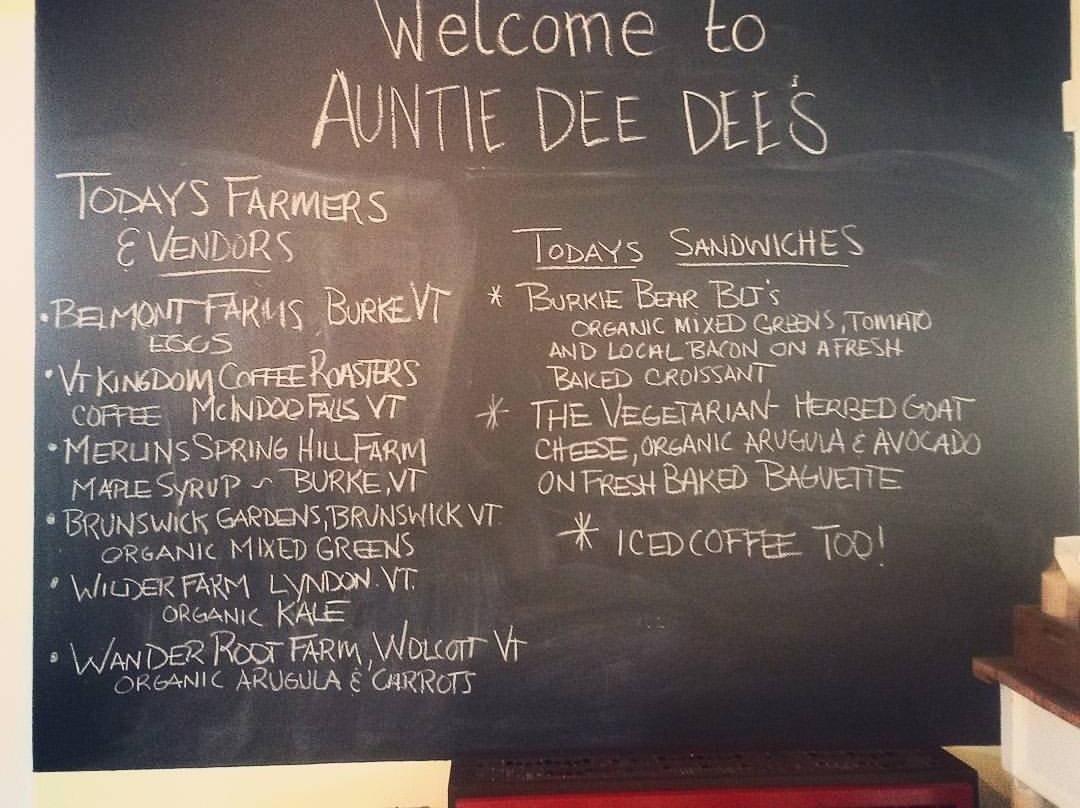 Welcome to
AUNTIE DEE DEE'S
TODAYS FARMERS
& VENDORS
• BELMONT FARMS BURKE VT
EGGS
• VT KINGDOM COFFEE ROASTERS
COFFEE MCINDOO FALLS VT
• MERLINS SPRING HILL FARM
MAPLE SYRUP ~ BURKE, VT
• BRUNSWICK GARDENS, BRUNSWICK VT.
ORGANIC MIXED GREENS
• WILDER FARM LYNDON. VT.
ORGANIC KALE
• WANDER ROOT FARM, WOLCOTT VT
ORGANIC ARUGULA & CARROTS
TODAYS SANDWICHES
* BURKIE BEAR BLT'S
ORGANIC MIXED GREENS, TOMATO
AND LOCAL BACON ON A FRESH
BAKED CROISSANT
* THE VEGETARIAN- HERBED GOAT
CHEESE, ORGANIC ARUGULA & AVOCADO
ON FRESH BAKED BAGUETTE
* ICED COFFEE TOO!